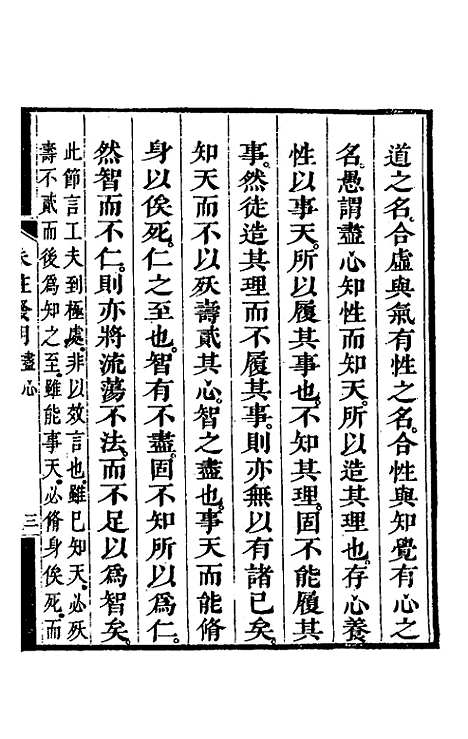 道之名。合虛與氣有性之名。合性與知覺有心之
名。愚謂盡心知性而知天。所以造其理也。存心養
性以事天。所以履其事也。不知其理。固不能履其
事。然徒造其理而不履其事。則亦無以有諸已矣。
知天而不以殀壽貳其心。智之盡也。事天而能脩
身以俟死。仁之至也。智有不盡。固不知所以爲仁。
然智而不仁。則亦將流蕩不法。而不足以爲智矣。
此節言工夫到極處。非以效言也。雖已知天。必殀
壽不貳而後爲知之至。雖能事天。必脩身俟死。而
朱註發明 盡心 三